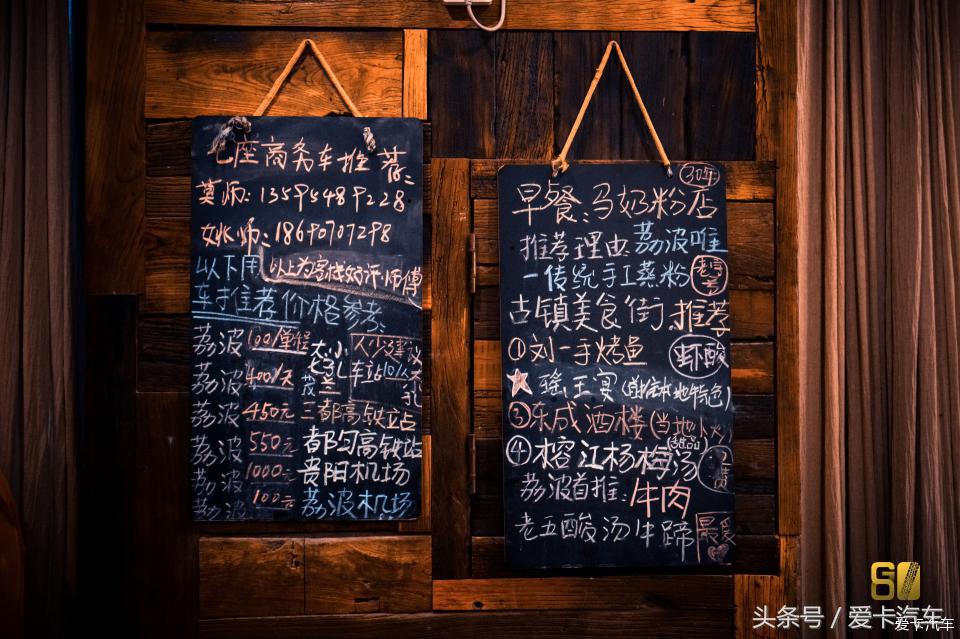 七座商务车推荐:
莫师: 13595489228
姚师: 18690707298
以下用
以上为客栈好评师傅
车推荐价格参考:
荔波 100/单程 大小七孔
人少建议
车站10/人
荔波 400/天 茂兰
荔波 450元 三都高铁站
荔波 550元 都匀高铁站
荔波 1000元 贵阳机场
荔波 100元 荔波机场
30年
早餐:马奶粉店
推荐理由:荔波唯
一传统手工蒸粉
老字号
古镇美食街:推荐
①刘一手烤鱼 虾酸
瑶王宴(首推本地特色)
③乐成酒楼(当地小炒)
④榕江杨梅汤
(甜品)
荔波首推:牛肉
老五酸汤牛蹄
最爱
头条号 / 爱卡汽车
爱卡汽车